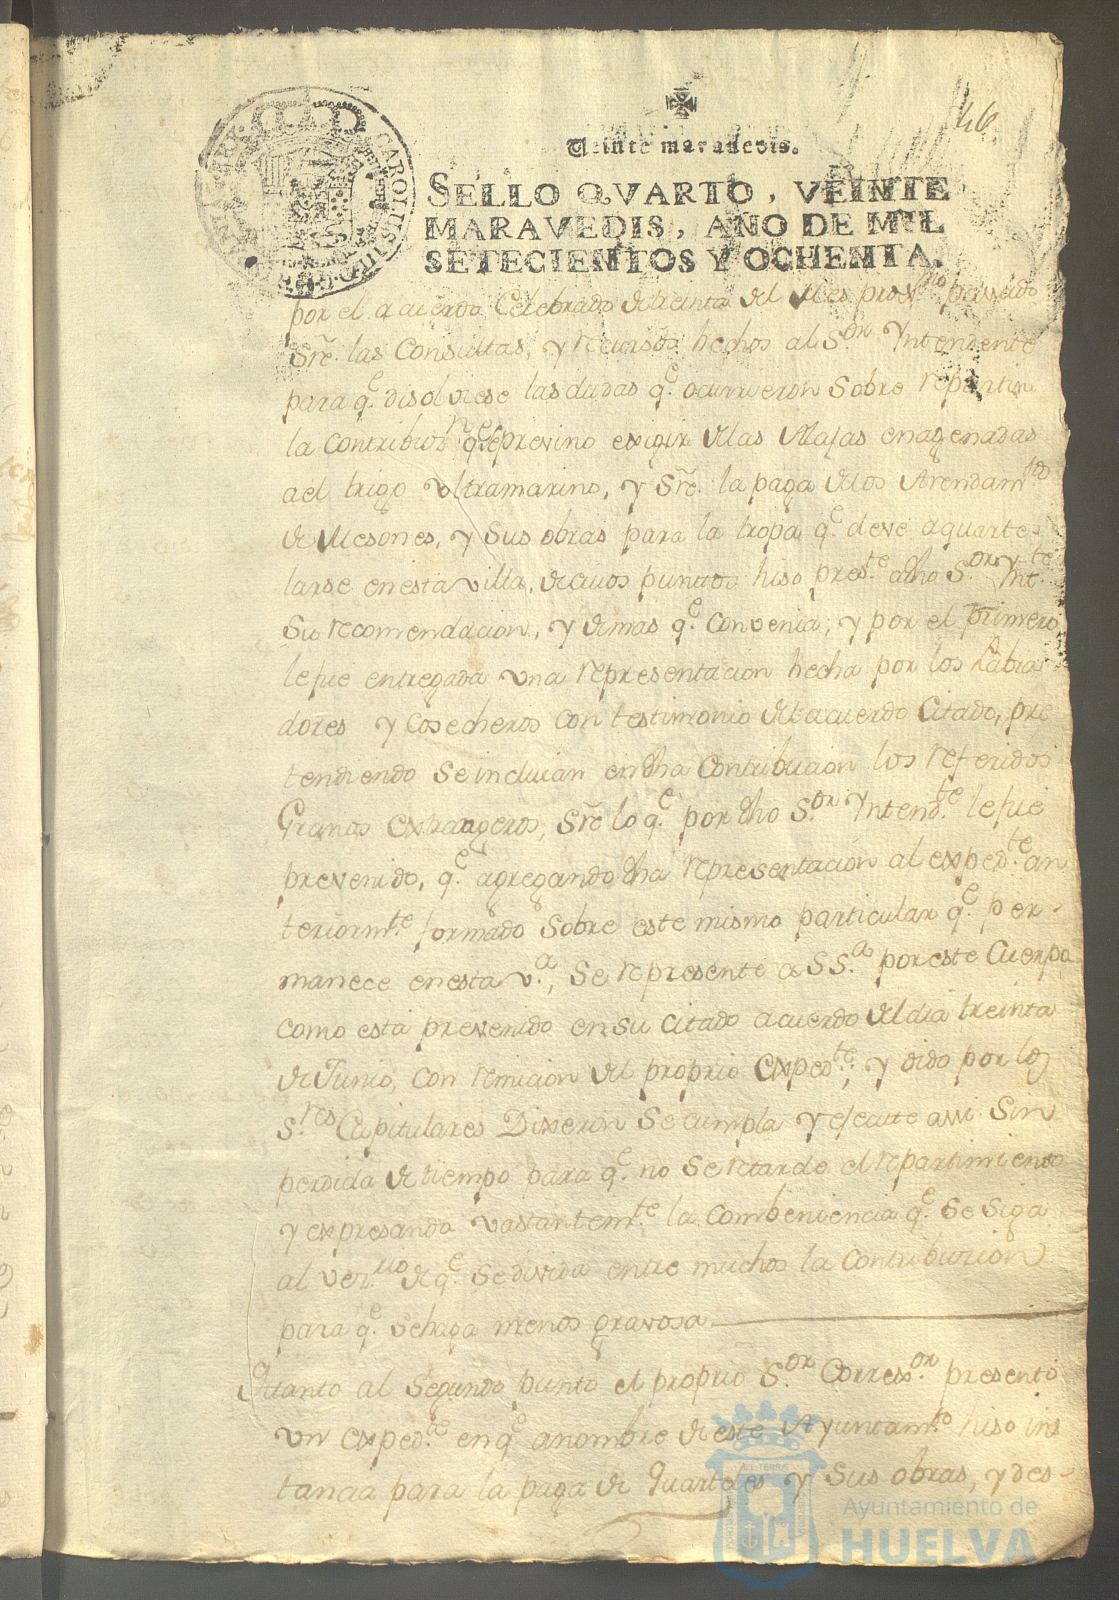 46
Veinte maravedis.
SELLO QVARTO, VEINTE
MARAVEDIS, AÑO DE MIL
SETECIENTOS Y OCHENTA.
CAROLUS III D G
por el acuerdo Celebrado de treinta del Mes pasado
Sre. las Consultas, y recursos hechos al S.or Yntendente
para q.e disolviese las dudas q.e ocurrieron sobre repartir
la Contribuz.n q.e se previno exigir de las Alajas enagenadas
a el trigo ultramarino, y Sre. la paga de los Arrendam.tos
de Mesones, y sus obras para la tropa q.e deve aquarte-
larse en esta villa, de cuios puntos hiso pres.te a dho S.or Ynt.te
su recomendacion, y demas q.e Convenia; y por el primero
le fue entregada una representacion hecha por los Labra
dores y Cosecheros con testimonio del acuerdo Citado, pre
tendiendo se incluian en dha Contribucion los referidos
Granos extrangeros, Sre lo q.e por dho S.or Yntend.te le fue
prevenido, q.e agregando dha representacion al exped.te an
teriorm.te formado sobre este mismo particular q.e per-
manece en esta v.a, se represente a S S.a por este Cuerpo
como esta prevenido en su citado acuerdo del dia treinta
de Junio, con remicion del proprio Exped.te; y oido por los
S.res Capitulares Dixeron se cumpla y ejecute assi sin
perdida de tiempo para q.e no se retarde el repartimiento
y expresando vastantem.te la combeniencia q.e se siga
al vez.rio de q.e se divida entre muchos la contribuzion
para q.e se haga menos gravosa
Quanto al Segundo punto el proprio S.or Correx.or presento
un exped.te en q.e a nombre de este Ayuntam.to hiso ins
tancia para la paga de Quarteles y sus obras, y des-
Ayuntamiento de
HUELVA